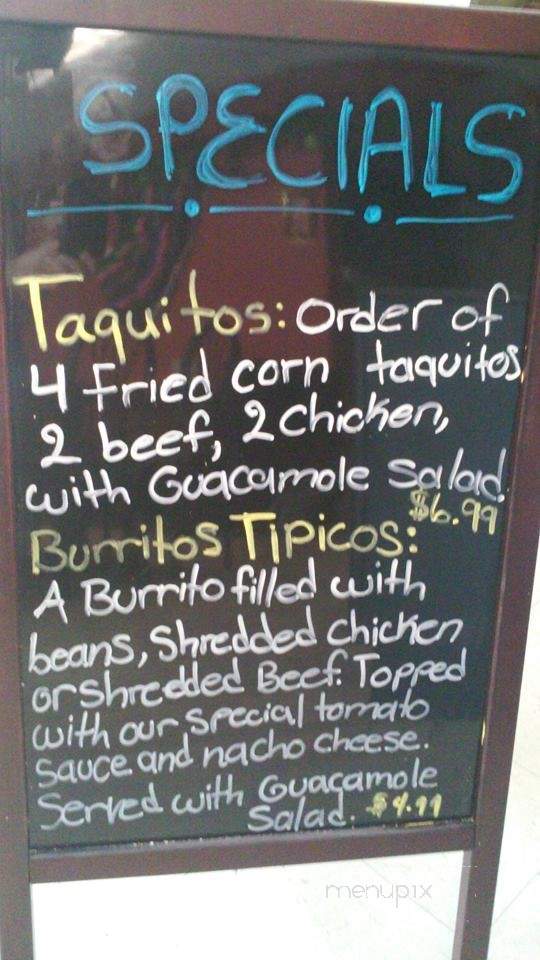 SPECIALS
Taquitos: Order of
4 Fried corn taquitos,
2 beef, 2 chicken,
with Guacamole Salad.
$6.99
Burritos Tipicos:
A Burrito filled with
beans, Shredded chicken
or shredded Beef. Topped
with our special tomato
Sauce and nacho cheese.
Served with Guacamole
Salad.
menupix